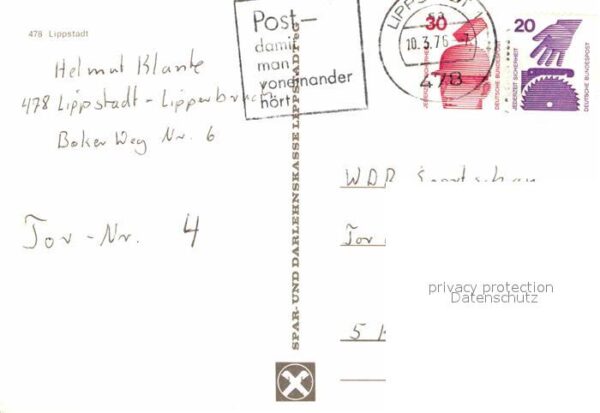 478 Lippstadt
Helmut Klanke
478 Lippstadt - Lipperbruch
Boker Weg Nr. 6
Tor-Nr. 4
SPAR- UND DARLEHNSKASSE LIPPSTADT eG
Post—
damit
man
voneinander
hört
LIPPSTADT 1
10.3.76
478
30
JEDERZEIT SICHERHEIT
DEUTSCHE BUNDESPOST
20
JEDERZEIT SICHERHEIT
DEUTSCHE BUNDESPOST
WDR Sportschau
Tor
5
privacy protection
Datenschutz